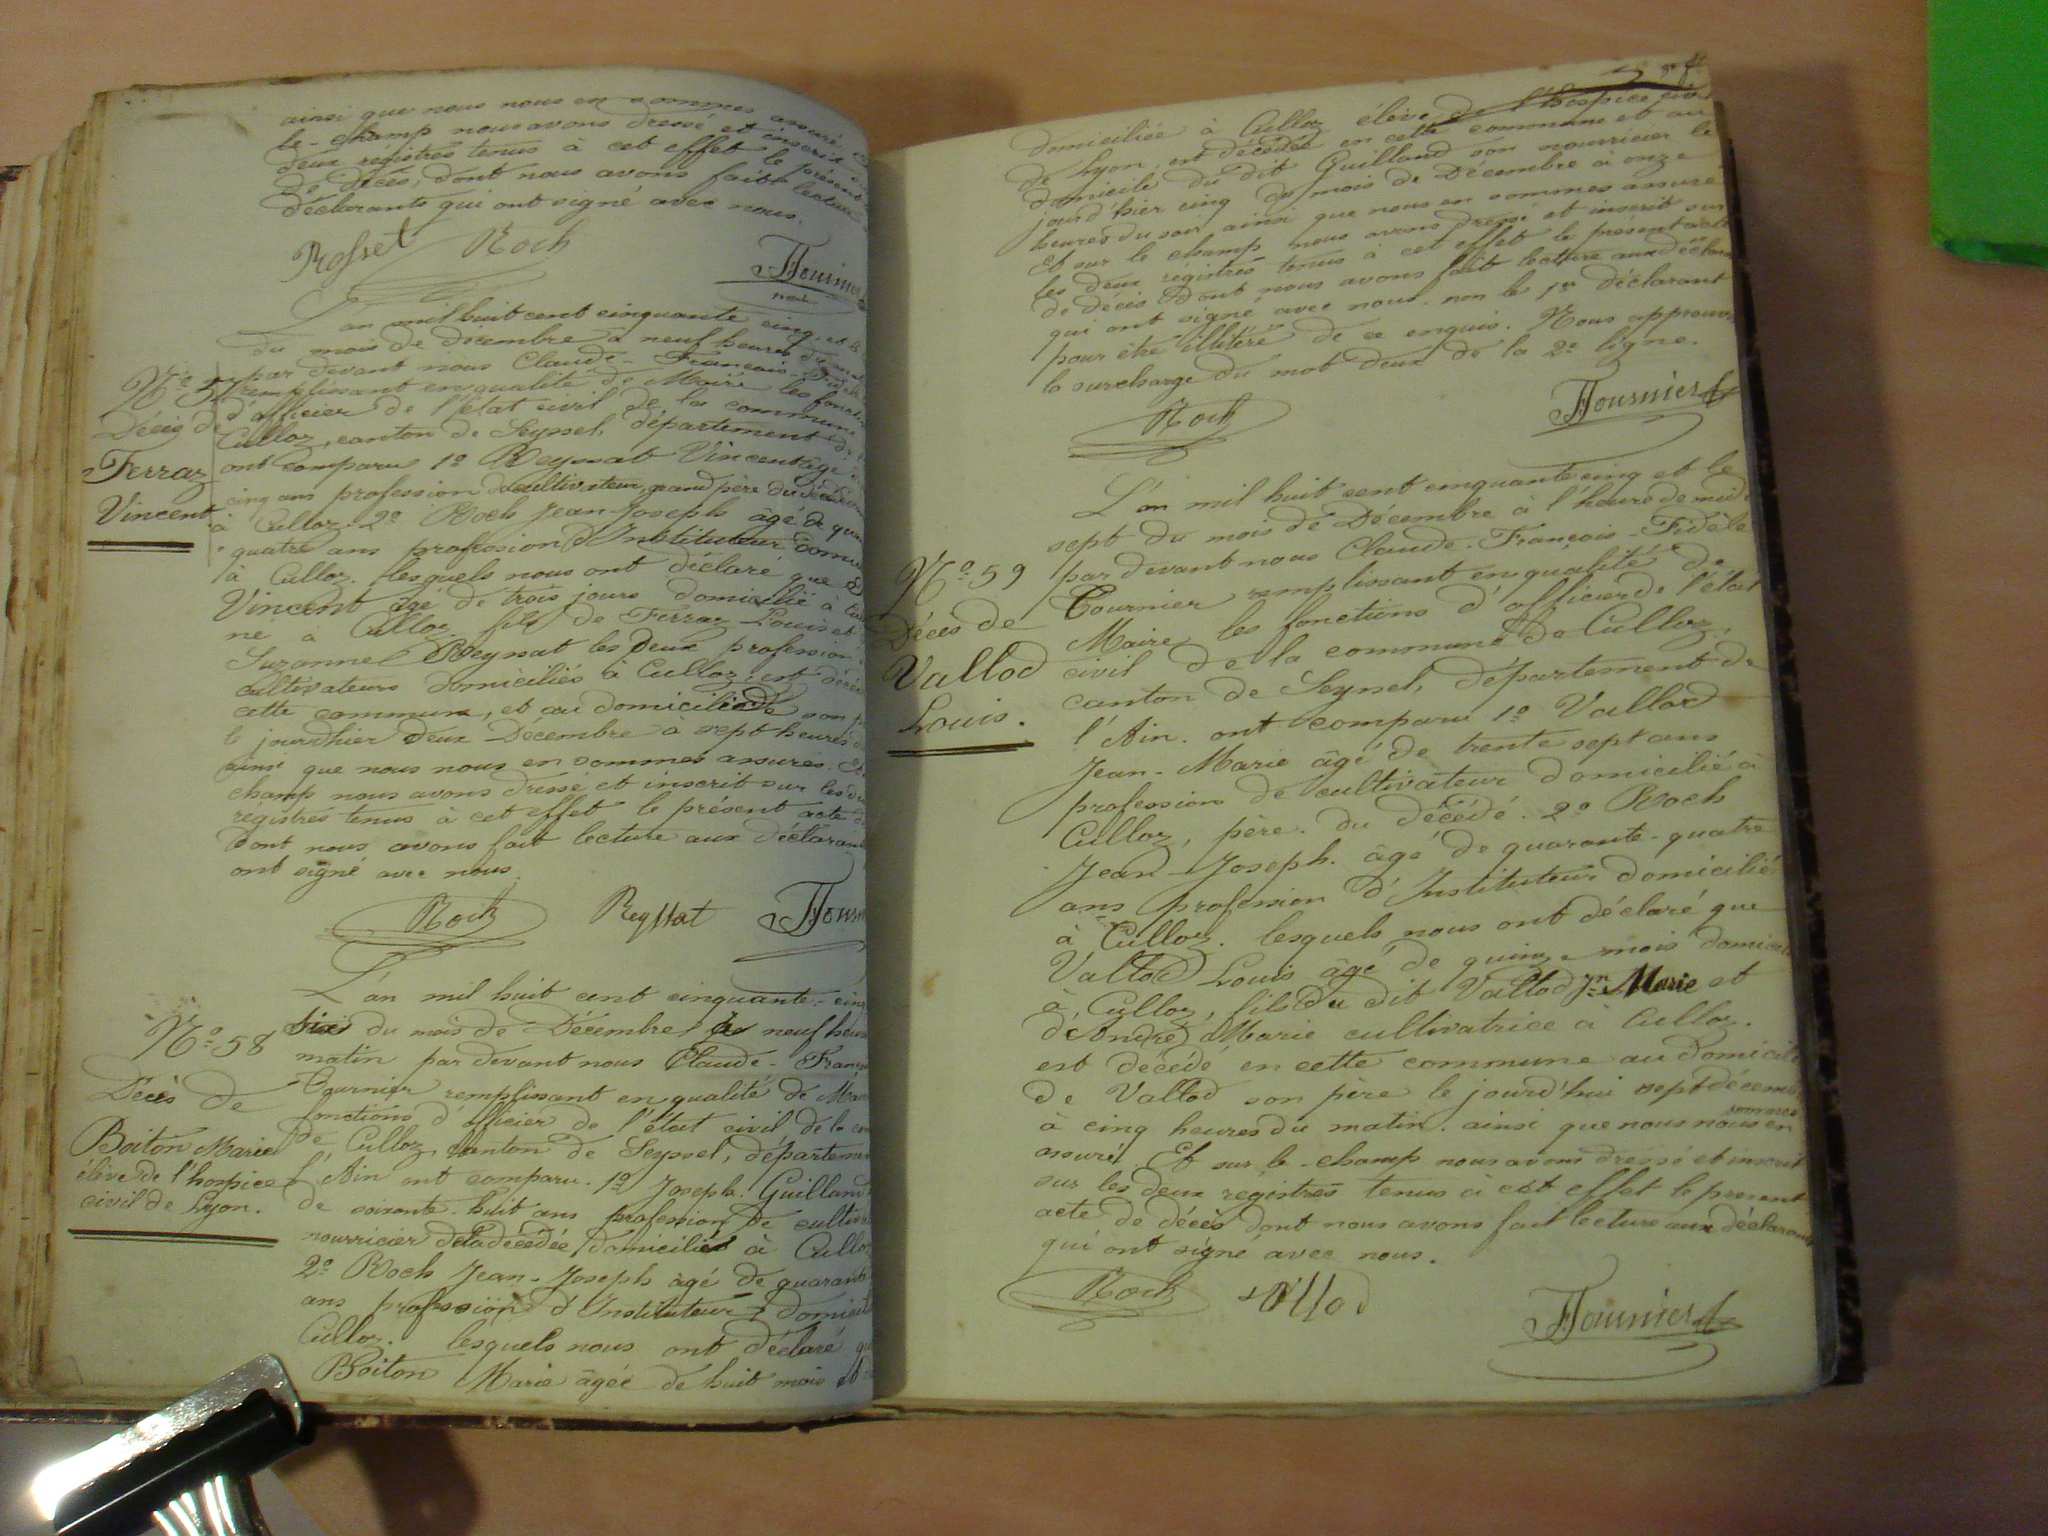 ainsi que nous nous en sommes assuré,
le-champ nous avons dressé et inscrit
deux régistres tenus à cet effet le présent
de décès, dont nous avons fait lecture
déclarants qui ont signé avec nous.
Rosset Roch Fournier
L'an mil huit cent cinquante cinq, et le
du mois de décembre à neuf heures du
par devant nous Claude-François-
N° 57 remplissant en qualité de Maire les fonctions
Décès de d'officier de l'état civil de la commune
Culloz, canton de Seyssel, département de
Ferraz ont comparu 1° Reyssat Vincent âgé
cinq ans profession de cultivateur, grand père du décédé
Vincent à Culloz. 2° Roch Jean-Joseph âgé de
quatre ans profession d'Instituteur
à Culloz. lesquels nous ont déclaré que
Vincent âgé de trois jours domicilié à
né à Culloz fils de Ferraz Louis et
Suzanne Reyssat les deux profession
cultivateurs domiciliés à Culloz. est
cette commune, et au domicile de son
le jourd'hier deux Décembre à sept heures
ainsi que nous nous en sommes assurés. Et
champ nous avons dressé et inscrit sur les
régistres tenus à cet effet le présent acte
dont nous avons fait lecture aux déclarants
ont signé avec nous.
Roch Reyssat Fournier
L'an mil huit cent cinquante-cinq
N° 58 six du mois de Décembre à neuf heures
matin par devant nous Claude-François
Décès de Tournier remplissant en qualité de Maire
fonctions d'officier de l'état civil de la
Boiton Marie de Culloz, canton de Seyssel, département
élève de l'hospice l'Ain ont comparu. 1° Joseph. Guilland
civil de Lyon. de soixante-huit ans profession de
nourricier de la décédée domiciliés à Culloz
2° Roch Jean-Joseph âgé de quarante
ans profession d'Instituteur
Culloz. lesquels nous ont déclaré
Boiton Marie âgée de huit mois et
domiciliée à Culloz élève de l'hospice
de Lyon, est décédée en cette commune et au
domicile du dit Guilland son nourricier le
jourd'hier cinq du mois de Décembre à onze
heures du soir ainsi que nous en sommes assuré
Et sur le champ nous avons dressé et inscrit sur
les deux registres tenus à cet effet le présent acte
de décès dont nous avons fait lecture aux
qui ont signé avec nous. non le 1er déclarant
pour être illitéré de ce enquis. Nous approuvons
la surcharge du mot deux de la 2e ligne.
Roch Fournier
L'an mil huit cent cinquante cinq et le
sept du mois de Décembre à l'heure de midi
N° 59 par devant nous Claude-François-Fidèle
Décès de Tournier remplissant en qualité de
Maire, les fonctions d'officier de l'état
Vallod civil de la commune de Culloz,
canton de Seyssel, département de
Louis. l'Ain. ont comparu 1° Vallod
Jean-Marie âgé de trente sept ans
profession de cultivateur domicilié à
Culloz, père du décédé. 2° Roch
Jean-Joseph. âgé de quarante-quatre
ans profession d'Instituteur domicilié
à Culloz. lesquels nous ont déclaré que
Vallod Louis âgé de quinze mois
à Culloz, fils du dit Vallod Jn Marie et
d'André Marie cultivatrice à Culloz.
est décédé en cette commune au domicile
de Vallod son père le jourd'hui sept décembre
à cinq heures du matin. ainsi que nous nous en sommes
assuré. Et sur le-champ nous avons dressé et inscrit
sur les deux registres tenus à cet effet le présent
acte de décès dont nous avons fait lecture aux déclarants
qui ont signé avec nous.
Roch Vallod Fournier